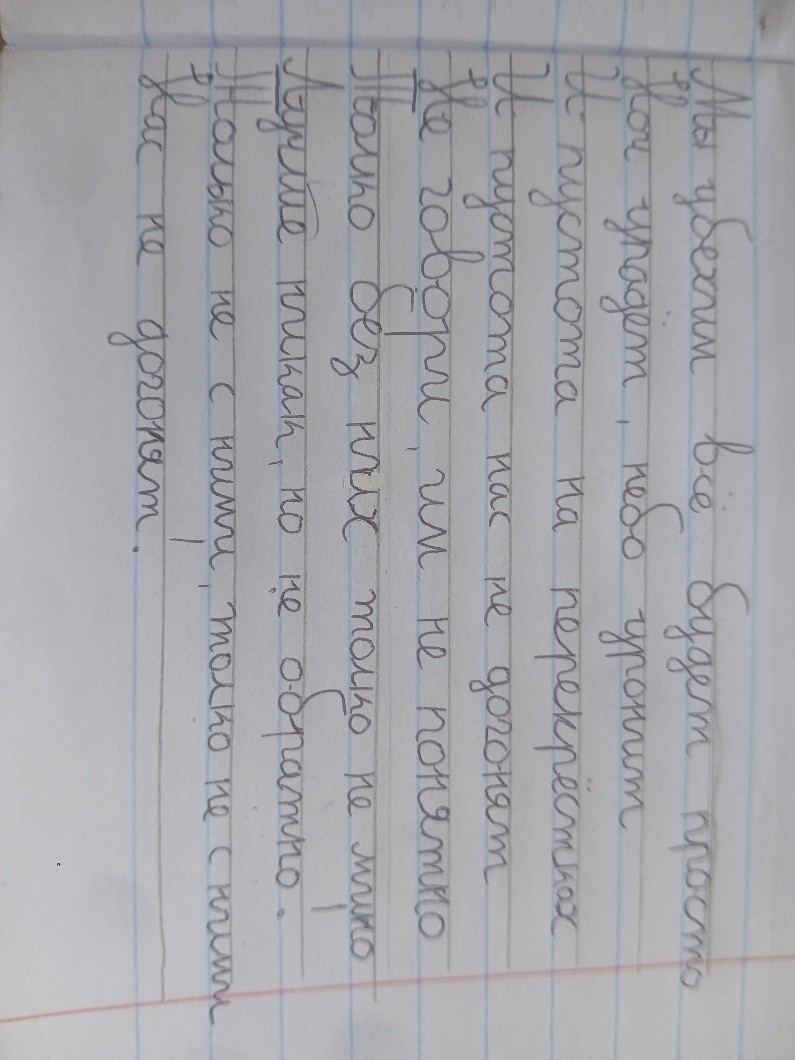 Мы убежим всё будет просто
Ноч упадёт, небо уронит
И пустота на перекрёстках
И пустота нас не догонят
Не говори, им не понятно
Толко без них толко не мимо
Лучше никак, но не обратно.
Только не с ними, толко не с ними
Нас не догонят.